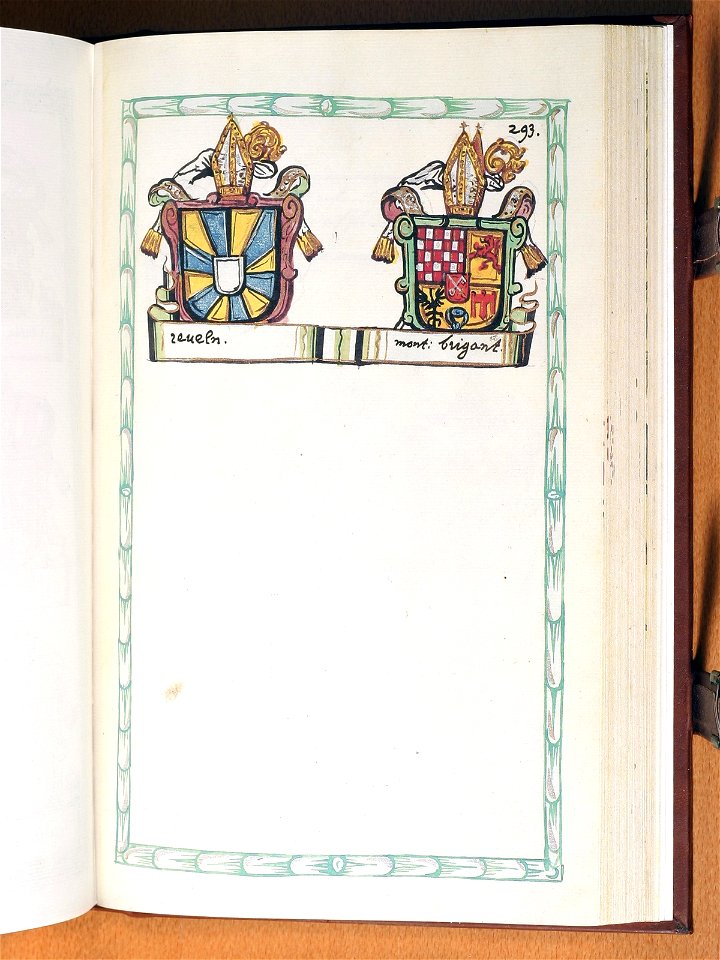 293.
zeueln.
mont: brigant.